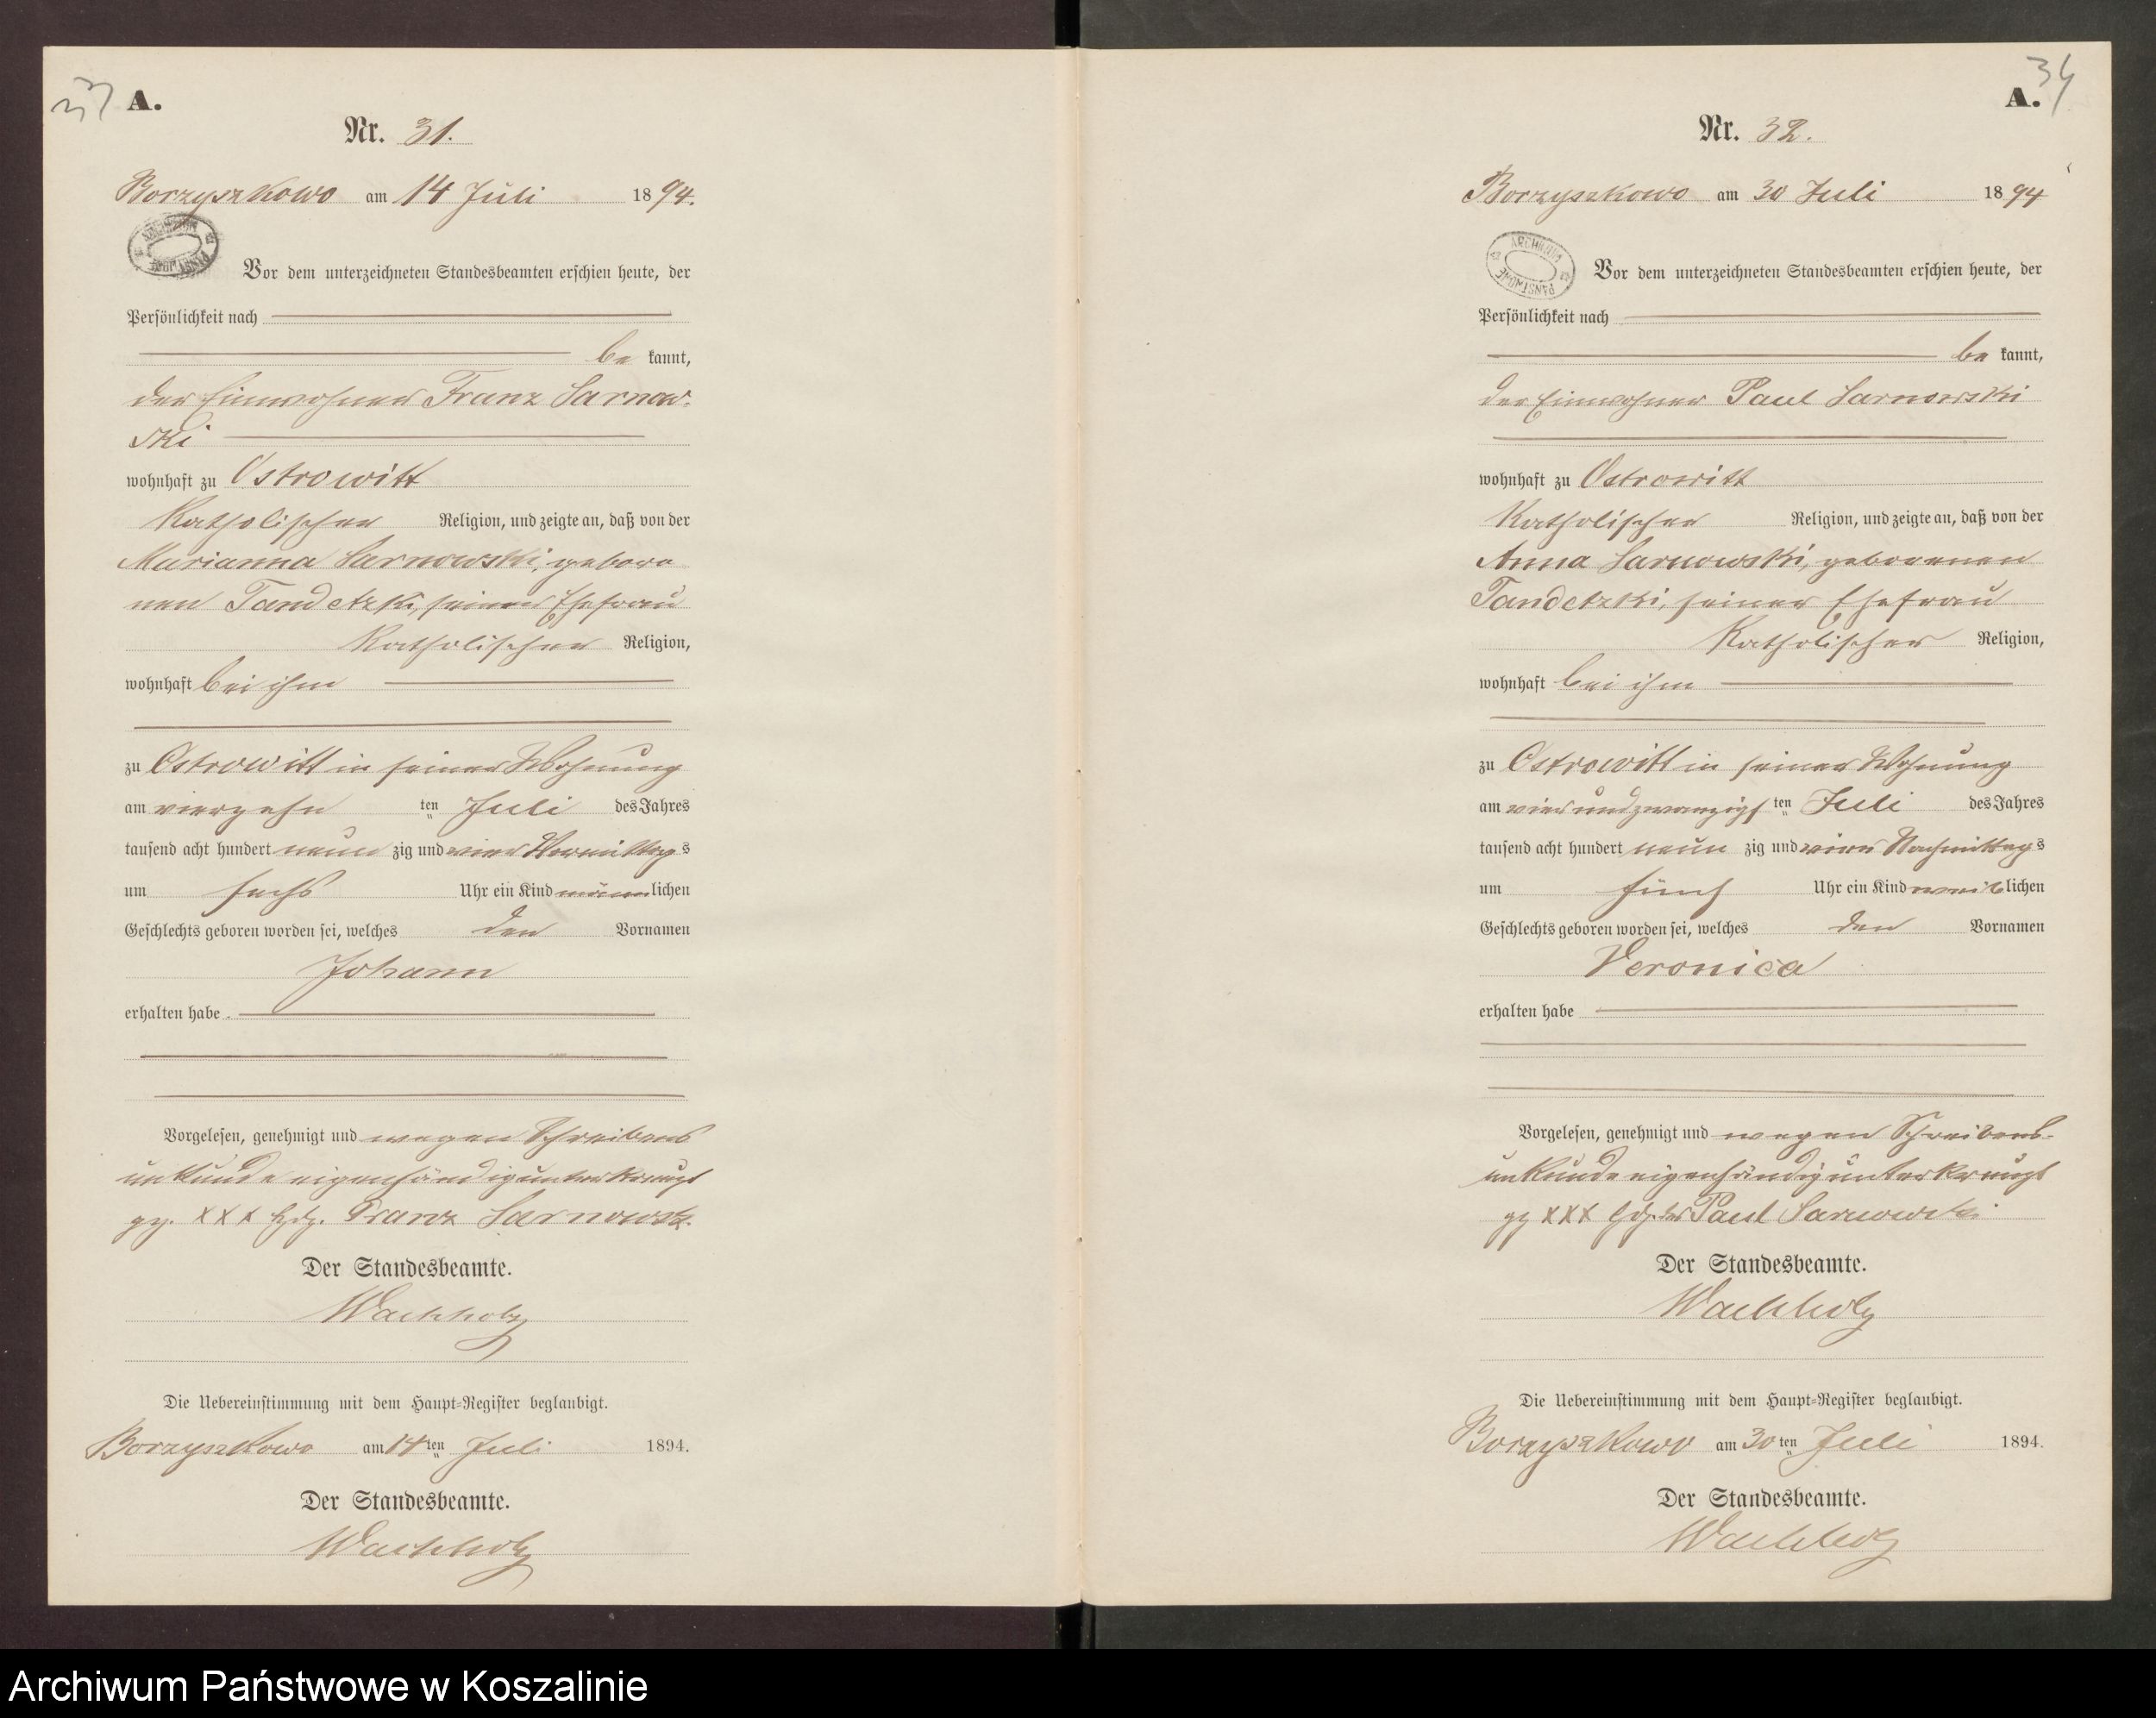 33 A.
Nr. 31.
Borzyszkowo am 14 Juli 1894.
ARCHIWUM PAŃSTWOWE
Vor dem unterzeichneten Standesbeamten erschien heute, der
Persönlichkeit nach
be kannt,
der Einwohner Franz Sarnow-
ski
wohnhaft zu Ostrowitt
Katholischer Religion, und zeigte an, daß von der
Marianna Sarnowski, gebore
nen Tandetzki, seiner Ehefrau
Katholischer Religion,
wohnhaft bei ihm
zu Ostrowitt in seiner Wohnung
am vierzehn ten Juli des Jahres
tausend acht hundert neun zig und vier Vormittags
um sechs Uhr ein Kind männlichen
Geschlechts geboren worden sei, welches den Vornamen
Johann
erhalten habe.
Vorgelesen, genehmigt und wegen Schreibens
unkunde eigenhändig unterkreuzt
gz. XXX Hdz. Franz Sarnowsk.
Der Standesbeamte.
Wachholz
Die Uebereinstimmung mit dem Haupt-Register beglaubigt.
Borzyszkowo am 14ten Juli 1894.
Der Standesbeamte.
Wachholz
A. 34
Nr. 32.
Borzyszkowo am 30 Juli 1894
ARCHIWUM PAŃSTWOWE
Vor dem unterzeichneten Standesbeamten erschien heute, der
Persönlichkeit nach
be kannt,
der Einwohner Paul Sarnowski
wohnhaft zu Ostrowitt
Katholischer Religion, und zeigte an, daß von der
Anna Sarnowski, geborenen
Tandetzki, seiner Ehefrau
Katholischer Religion,
wohnhaft bei ihm
zu Ostrowitt in seiner Wohnung
am vierundzwanzigs ten Juli des Jahres
tausend acht hundert neun zig und vier Nachmittags
um fünf Uhr ein Kind weiblichen
Geschlechts geboren worden sei, welches den Vornamen
Veronica
erhalten habe
Vorgelesen, genehmigt und wegen Schreibens-
unkunde eigenhändig unterkreuzt
gz XXX Hdz. des Paul Sarnowski
Der Standesbeamte.
Wachholz
Die Uebereinstimmung mit dem Haupt-Register beglaubigt.
Borzyszkowo am 30ten Juli 1894.
Der Standesbeamte.
Wachholz
Archiwum Państwowe w Koszalinie